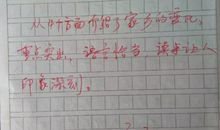 从四个方面介绍了家乡的变化,
重点突出,语言恰当,读来让人
印象深刻。